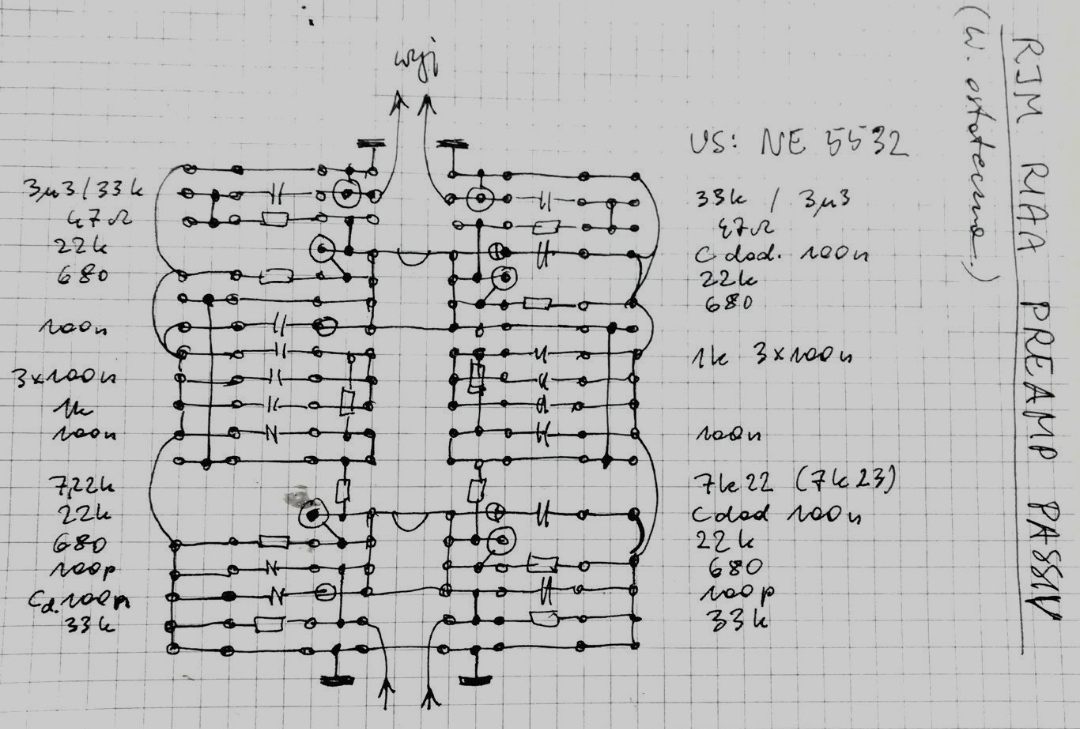 RJM RIAA PREAMP PASSIV
(w. ostateczna)
wyj
US: NE 5532
3µ3/33k
47Ω
22k
680
100n
3x100n
1k
100n
7,22k
22k
680
100p
Cd. 100n
33k
33k / 3µ3
47Ω
Cdod. 100n
22k
680
1k 3x100n
100n
7k22 (7k23)
Cdod 100n
22k
680
100p
33k